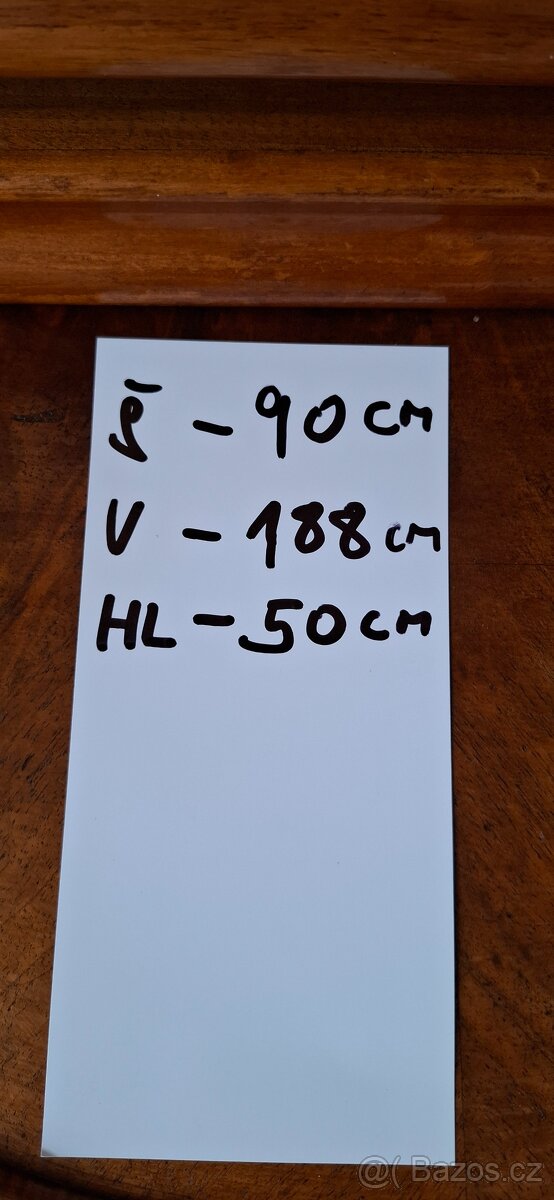 Š - 90 cm
V - 188 cm
HL - 50 cm
@( Bazos.cz